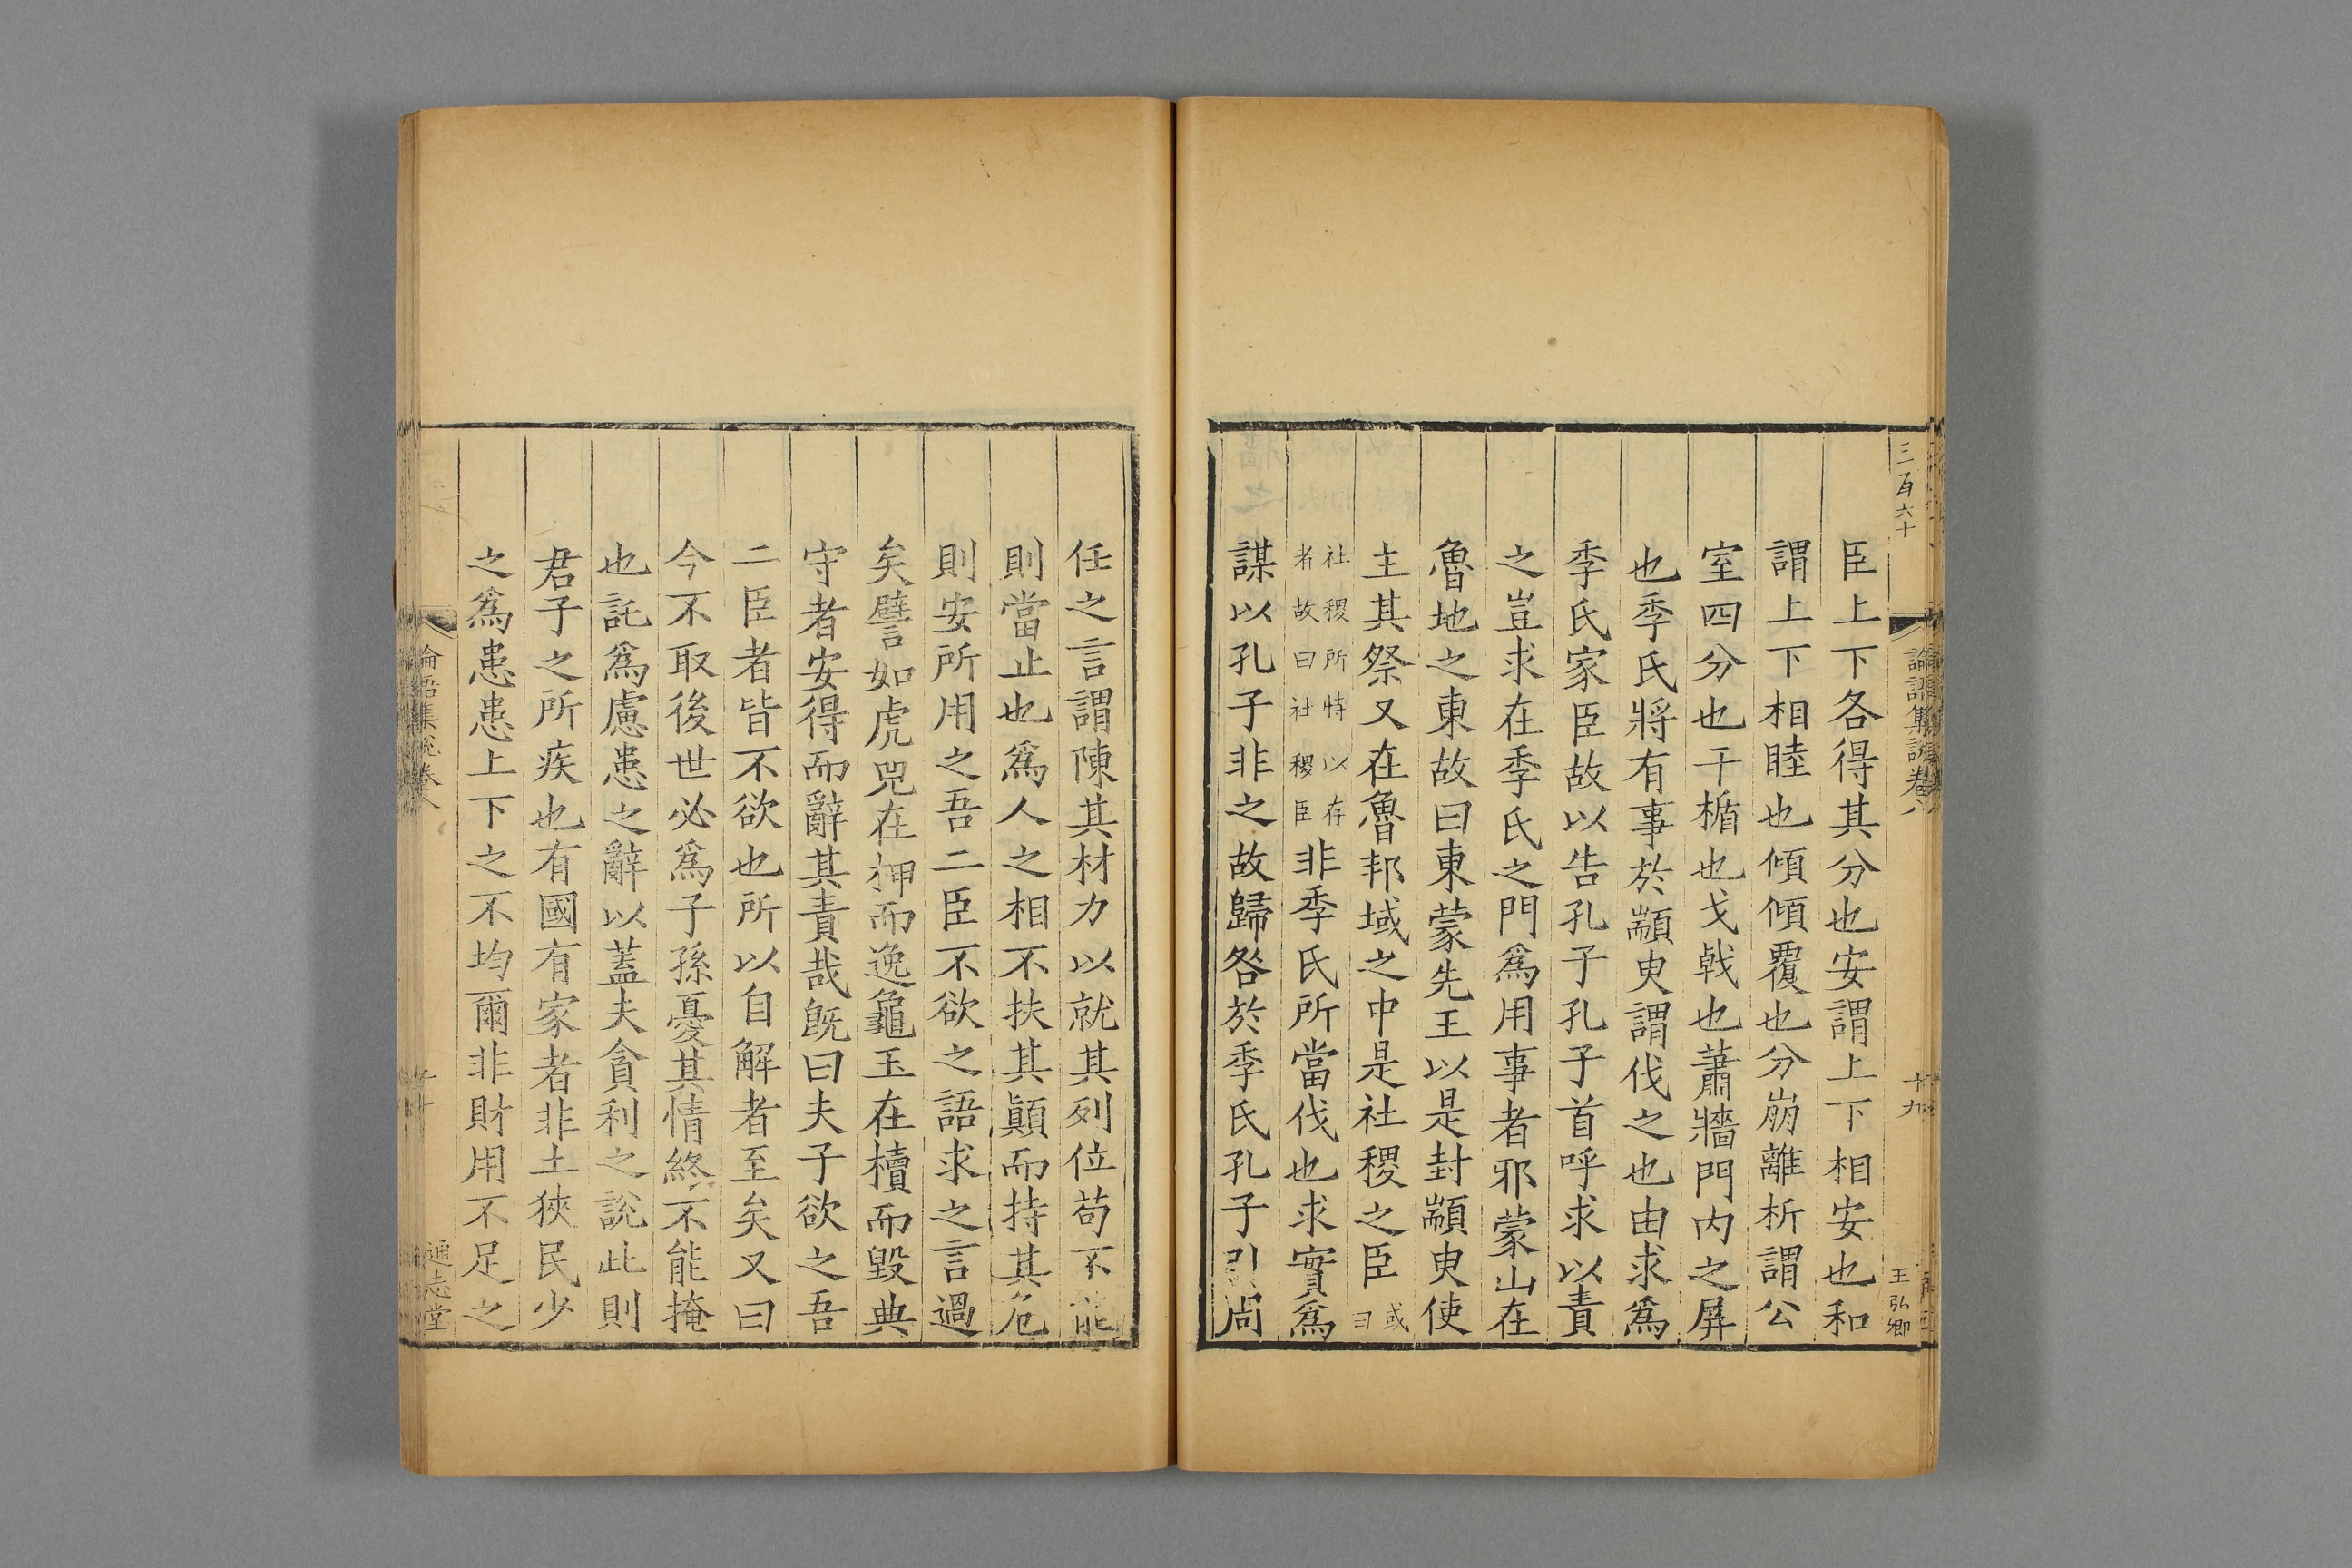 三百六十
論語集說卷八
十九
王弘卿
臣上下各得其分也安謂上下相安也和
謂上下相睦也傾傾覆也分崩離析謂公
室四分也干楯也戈戟也蕭牆門内之屏
也季氏將有事於顓臾謂伐之也由求爲
季氏家臣故以告孔子孔子首呼求以責
之豈求在季氏之門爲用事者邪蒙山在
魯地之東故曰東蒙先王以是封顓臾使
主其祭又在魯邦域之中是社稷之臣或曰
社稷所恃以存
者故曰社稷臣
非季氏所當伐也求實爲
謀以孔子非之故歸咎於季氏孔子引周
任之言謂陳其材力以就其列位苟不能
則當止也爲人之相不扶其顚而持其危
則安所用之吾二臣不欲之語求之言過
矣譬如虎兕在柙而逸龜玉在櫝而毀典
守者安得而辭其責哉旣曰夫子欲之吾
二臣者皆不欲也所以自解者至矣又曰
今不取後世必爲子孫憂其情終不能掩
也託爲慮患之辭以蓋夫貪利之說此則
君子之所疾也有國有家者非土狹民少
之爲患患上下之不均爾非財用不足之
論語集說卷八
通志堂